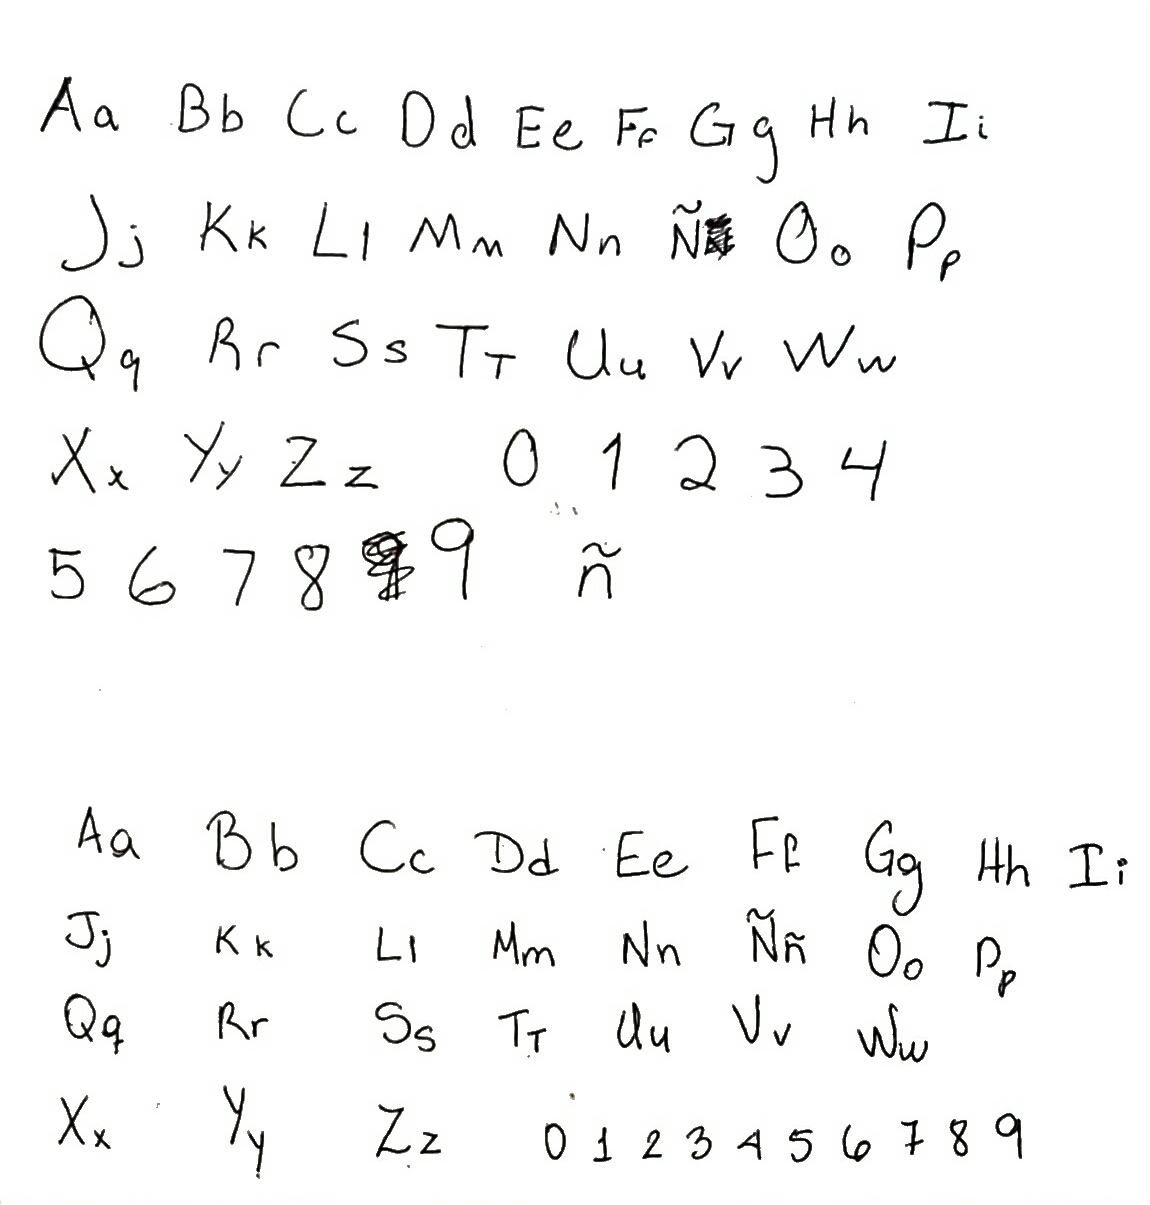 Aa Bb Cc Dd Ee Ff Gg Hh Ii
Jj Kk Ll Mm Nn Ñ Oo Pp
Qq Rr Ss TT Uu Vv Ww
Xx Yy Zz 0 1 2 3 4
5 6 7 8 9 ñ
Aa Bb Cc Dd Ee Ff Gg Hh Ii
Jj Kk Ll Mm Nn Ññ Oo Pp
Qq Rr Ss TT Uu Vv Ww
Xx Yy Zz 0 1 2 3 4 5 6 7 8 9